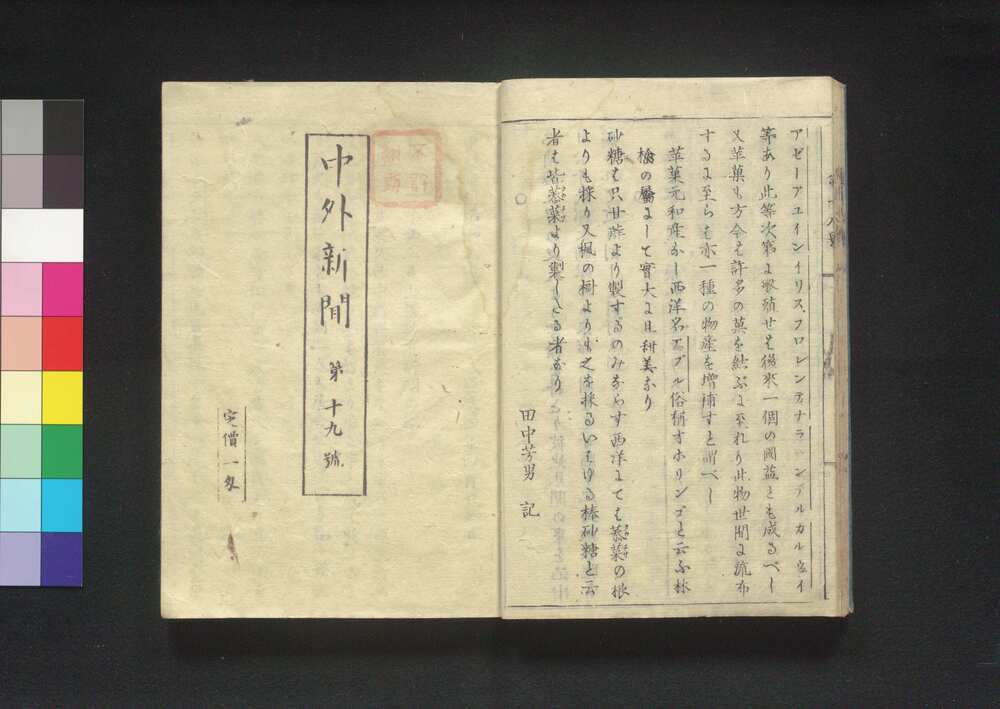 アビーアユインイリスフロレンテナラーンデルカルウイ
等あり此等次第に繁殖せば後来一個の國益とも成るべし
又苹菓も方今は許多の菓を結ぶに至れり此物世間に流布
するに至らば亦一種の物産を増補すと謂べし
苹菓元和産なし西洋名アプル俗稱オホリンゴと云ふ林
檎の屬にして實大に且甜美なり
砂糖は只甘蔗より製するのみならす西洋にては菾菜の根
よりも採り又楓の樹よりも之を採るいはゆる棒砂糖と云
者は皆菾菜より製したる者なり
田中芳男 記
中外新聞 第十九號
定價一匁